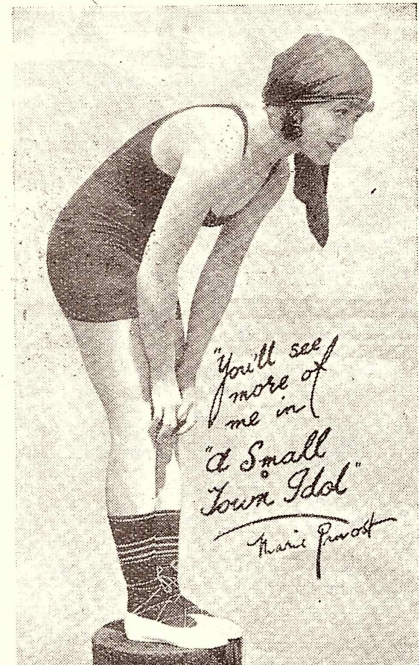 "You'll see
more of
me in
"A Small
Town Idol"
Marie Prevost